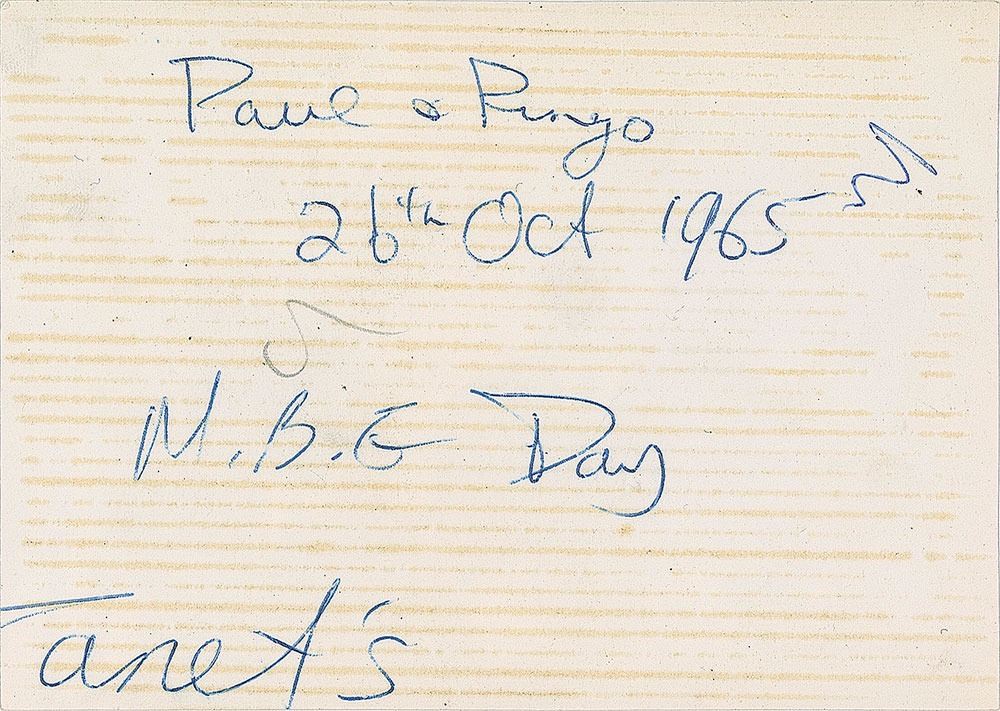 Paul & Ringo
26th Oct 1965
M.B.E Day
Janet's